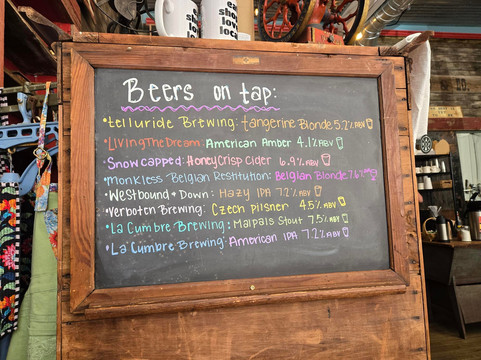 eat
shop
love
local
Beers on tap:
• telluride Brewing: tangerine Blonde 5.2% ABV
• Living The Dream: American Amber 4.1% ABV
• Snowcapped: HoneyCrisp Cider 6.9% ABV
• Monkless Belgian Restitution: Belgian Blonde 7.6% ABV
• Westbound + Down: Hazy IPA 7.2% ABV
• Verboten Brewing: Czech pilsner 4.5% ABV
• La Cumbre Brewing: Malpais Stout 7.5% ABV
• La Cumbre Brewing: American IPA 7.2% ABV